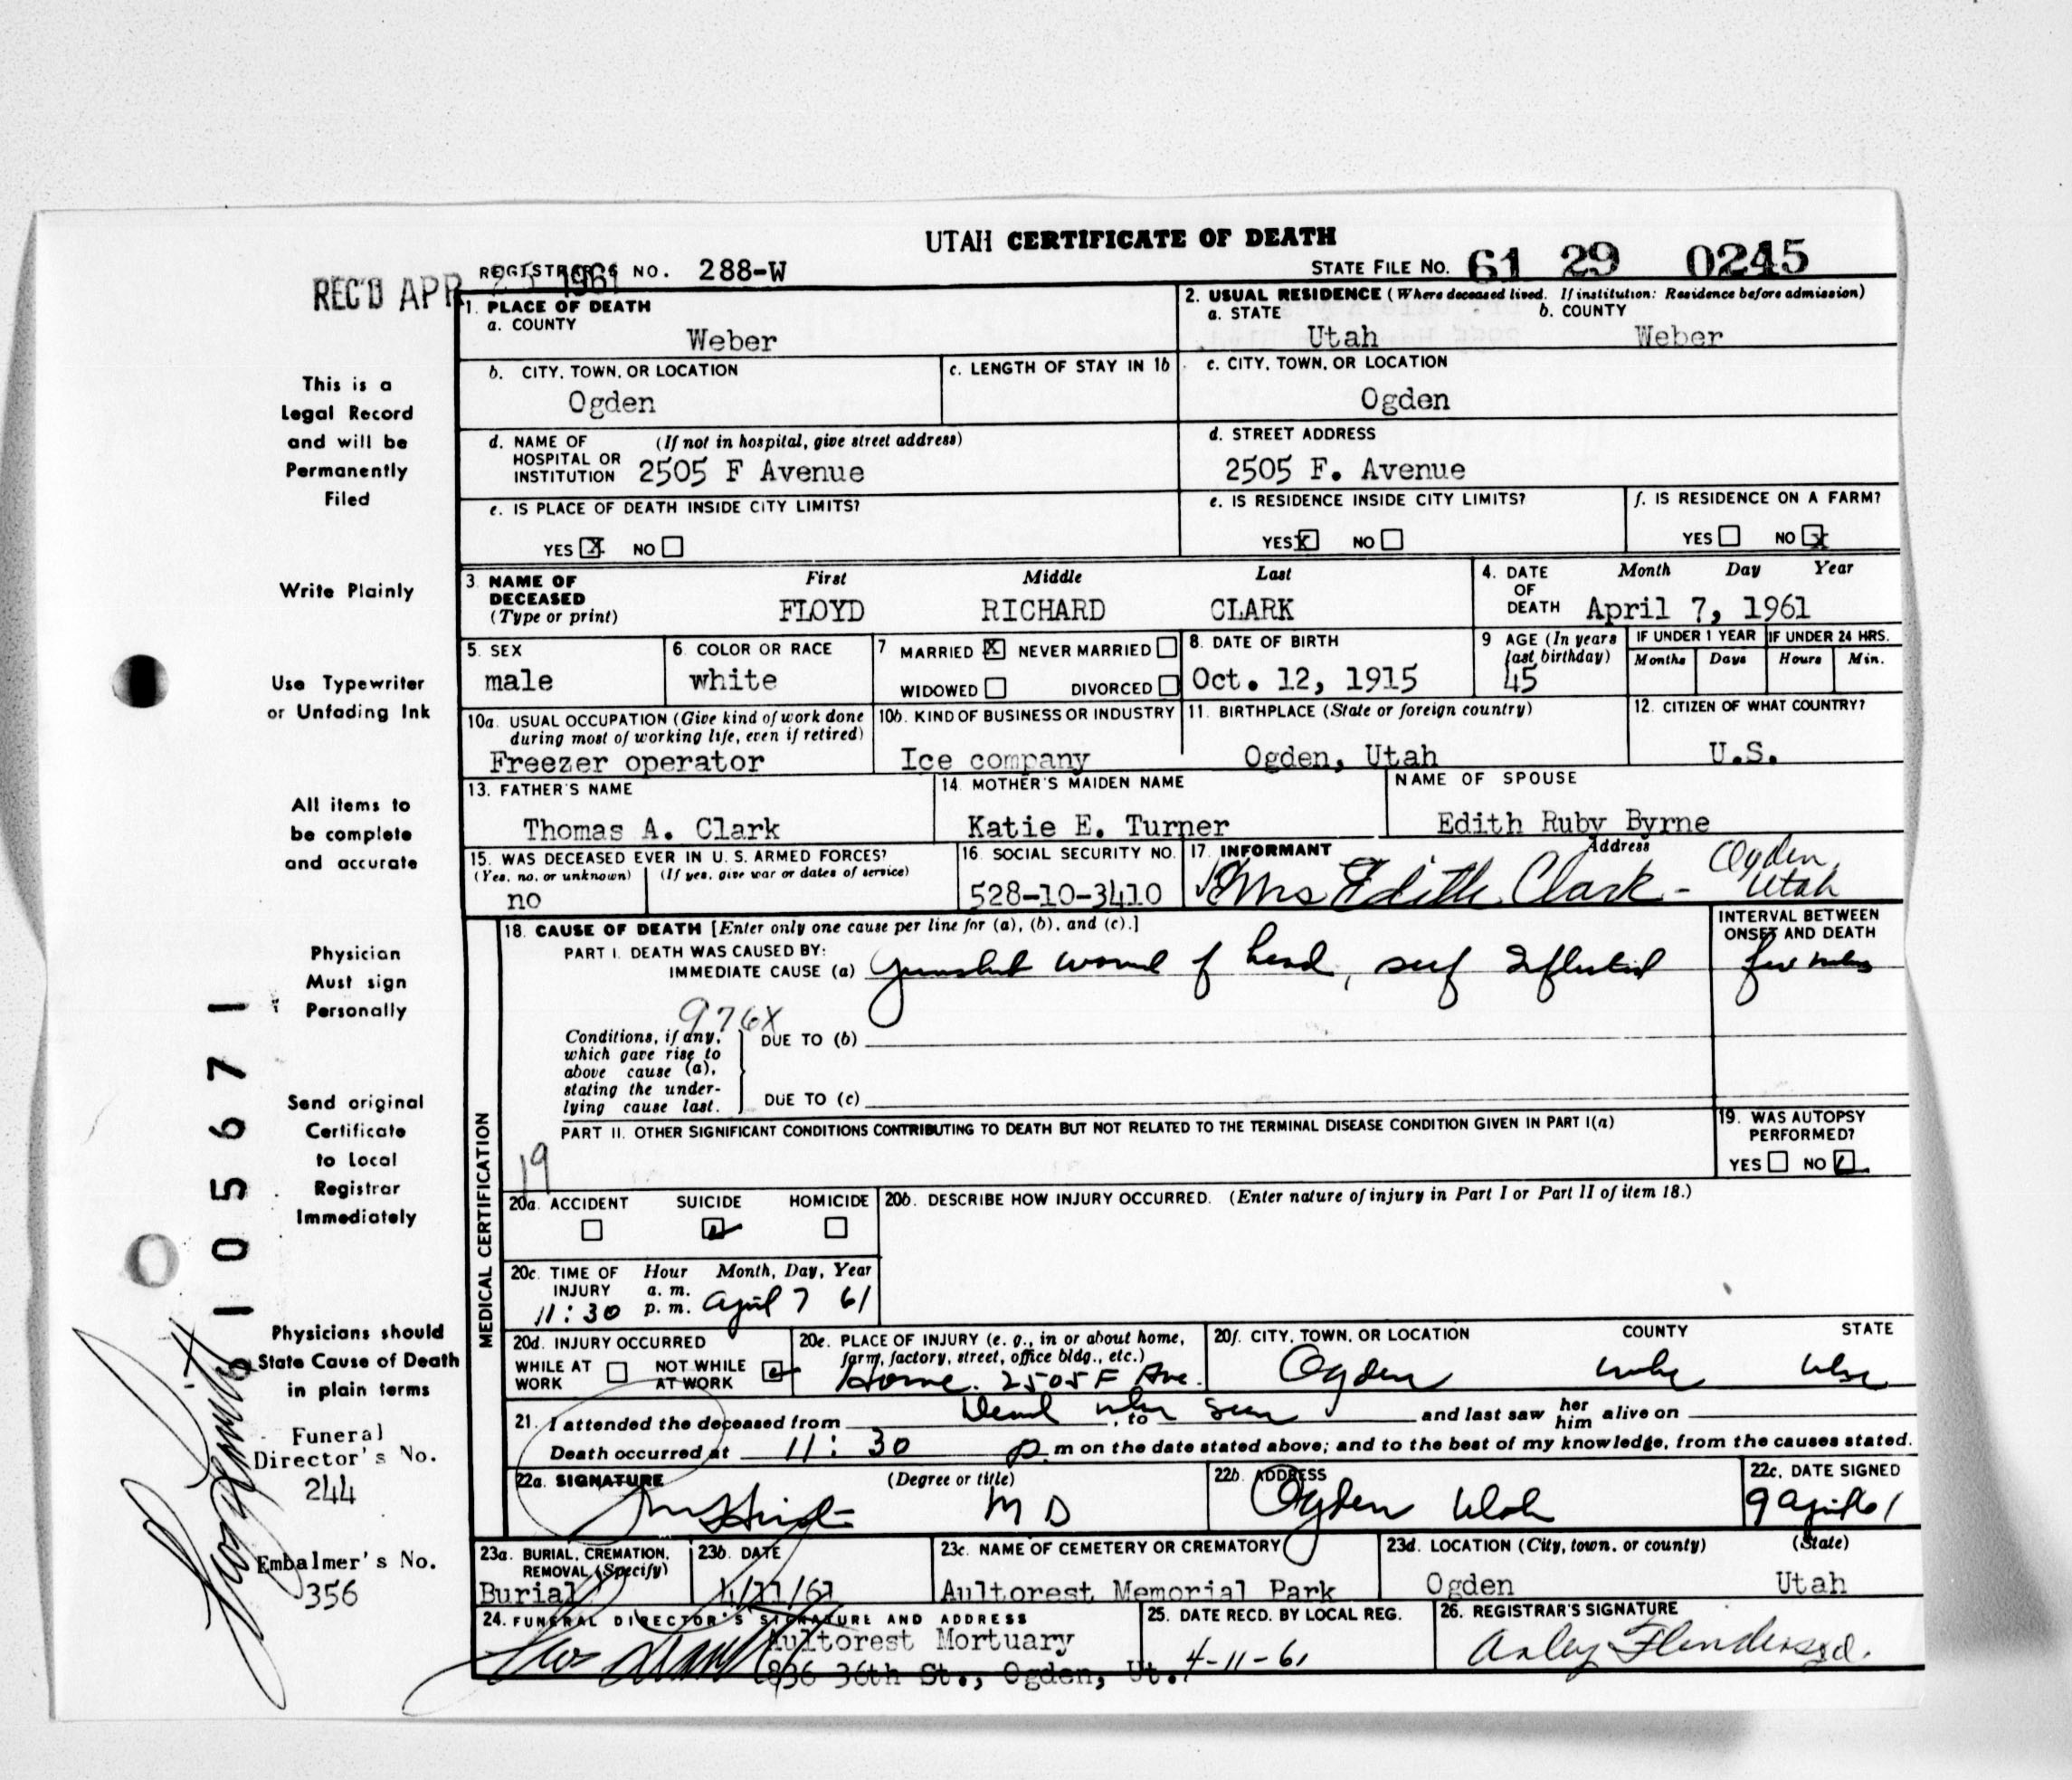 UTAH CERTIFICATE OF DEATH
REC'D APR 1961
REGISTRAR'S NO. 288-W
STATE FILE NO. 61 29 0245
1. PLACE OF DEATH
a. COUNTY
Weber
2. USUAL RESIDENCE (Where deceased lived. If institution: Residence before admission)
a. STATE b. COUNTY
Utah Weber
b. CITY, TOWN, OR LOCATION
Ogden
c. LENGTH OF STAY IN 1b
c. CITY, TOWN, OR LOCATION
Ogden
d. NAME OF (If not in hospital, give street address)
HOSPITAL OR
INSTITUTION 2505 F Avenue
d. STREET ADDRESS
2505 F. Avenue
e. IS PLACE OF DEATH INSIDE CITY LIMITS?
YES X NO
e. IS RESIDENCE INSIDE CITY LIMITS?
YES X NO
f. IS RESIDENCE ON A FARM?
YES NO X
3. NAME OF DECEASED (Type or print)
First Middle Last
FLOYD RICHARD CLARK
4. DATE OF DEATH Month Day Year
April 7, 1961
5. SEX
male
6. COLOR OR RACE
white
7 MARRIED X NEVER MARRIED
WIDOWED DIVORCED
8. DATE OF BIRTH
Oct. 12, 1915
9 AGE (In years last birthday)
45
IF UNDER 1 YEAR IF UNDER 24 HRS.
Months Days Hours Min.
10a. USUAL OCCUPATION (Give kind of work done
during most of working life, even if retired)
Freezer operator
10b. KIND OF BUSINESS OR INDUSTRY
Ice company
11. BIRTHPLACE (State or foreign country)
Ogden, Utah
12. CITIZEN OF WHAT COUNTRY?
U.S.
13. FATHER'S NAME
Thomas A. Clark
14. MOTHER'S MAIDEN NAME
Katie E. Turner
NAME OF SPOUSE
Edith Ruby Byrne
15. WAS DECEASED EVER IN U. S. ARMED FORCES?
(Yes, no, or unknown) (If yes, give war or dates of service)
no
16. SOCIAL SECURITY NO.
528-10-3410
17. INFORMANT Address
Mrs Edith Clark - Ogden, Utah
MEDICAL CERTIFICATION
18. CAUSE OF DEATH [Enter only one cause per line for (a), (b), and (c).]
PART I. DEATH WAS CAUSED BY:
IMMEDIATE CAUSE (a) Gunshot wound of head, self Inflicted
INTERVAL BETWEEN
ONSET AND DEATH
few
976X
Conditions, if any,
which gave rise to
above cause (a),
stating the under-
lying cause last.
DUE TO (b)
DUE TO (c)
PART II. OTHER SIGNIFICANT CONDITIONS CONTRIBUTING TO DEATH BUT NOT RELATED TO THE TERMINAL DISEASE CONDITION GIVEN IN PART I(a)
19
19. WAS AUTOPSY
PERFORMED?
YES NO
20a. ACCIDENT SUICIDE HOMICIDE
20b. DESCRIBE HOW INJURY OCCURRED. (Enter nature of injury in Part I or Part II of item 18.)
20c. TIME OF INJURY Hour Month, Day, Year
a. m.
11:30 p. m. April 7 61
20d. INJURY OCCURRED
WHILE AT WORK NOT WHILE AT WORK
20e. PLACE OF INJURY (e. g., in or about home,
farm, factory, street, office bldg., etc.)
Home. 2505 F Ave.
20f. CITY, TOWN, OR LOCATION COUNTY STATE
Ogden
21. I attended the deceased from Dead when seen, to and last saw her him alive on
Death occurred at 11:30 p. m on the date stated above; and to the best of my knowledge, from the causes stated.
22a. SIGNATURE (Degree or title)
M D
22b. ADDRESS
Ogden Utah
22c. DATE SIGNED
9 April 61
23a. BURIAL, CREMATION, REMOVAL (Specify)
Burial
23b. DATE
4/11/61
23c. NAME OF CEMETERY OR CREMATORY
Aultorest Memorial Park
23d. LOCATION (City, town, or county) (State)
Ogden Utah
24. FUNERAL DIRECTOR'S SIGNATURE AND ADDRESS
Aultorest Mortuary
836 36th St., Ogden, Ut.
25. DATE RECD. BY LOCAL REG.
4-11-61
26. REGISTRAR'S SIGNATURE
This is a
Legal Record
and will be
Permanently
Filed
Write Plainly
Use Typewriter
or Unfading Ink
All items to
be complete
and accurate
Physician
Must sign
Personally
Send original
Certificate
to Local
Registrar
Immediately
Physicians should
State Cause of Death
in plain terms
Funeral
Director's No.
244
Embalmer's No.
356
105671